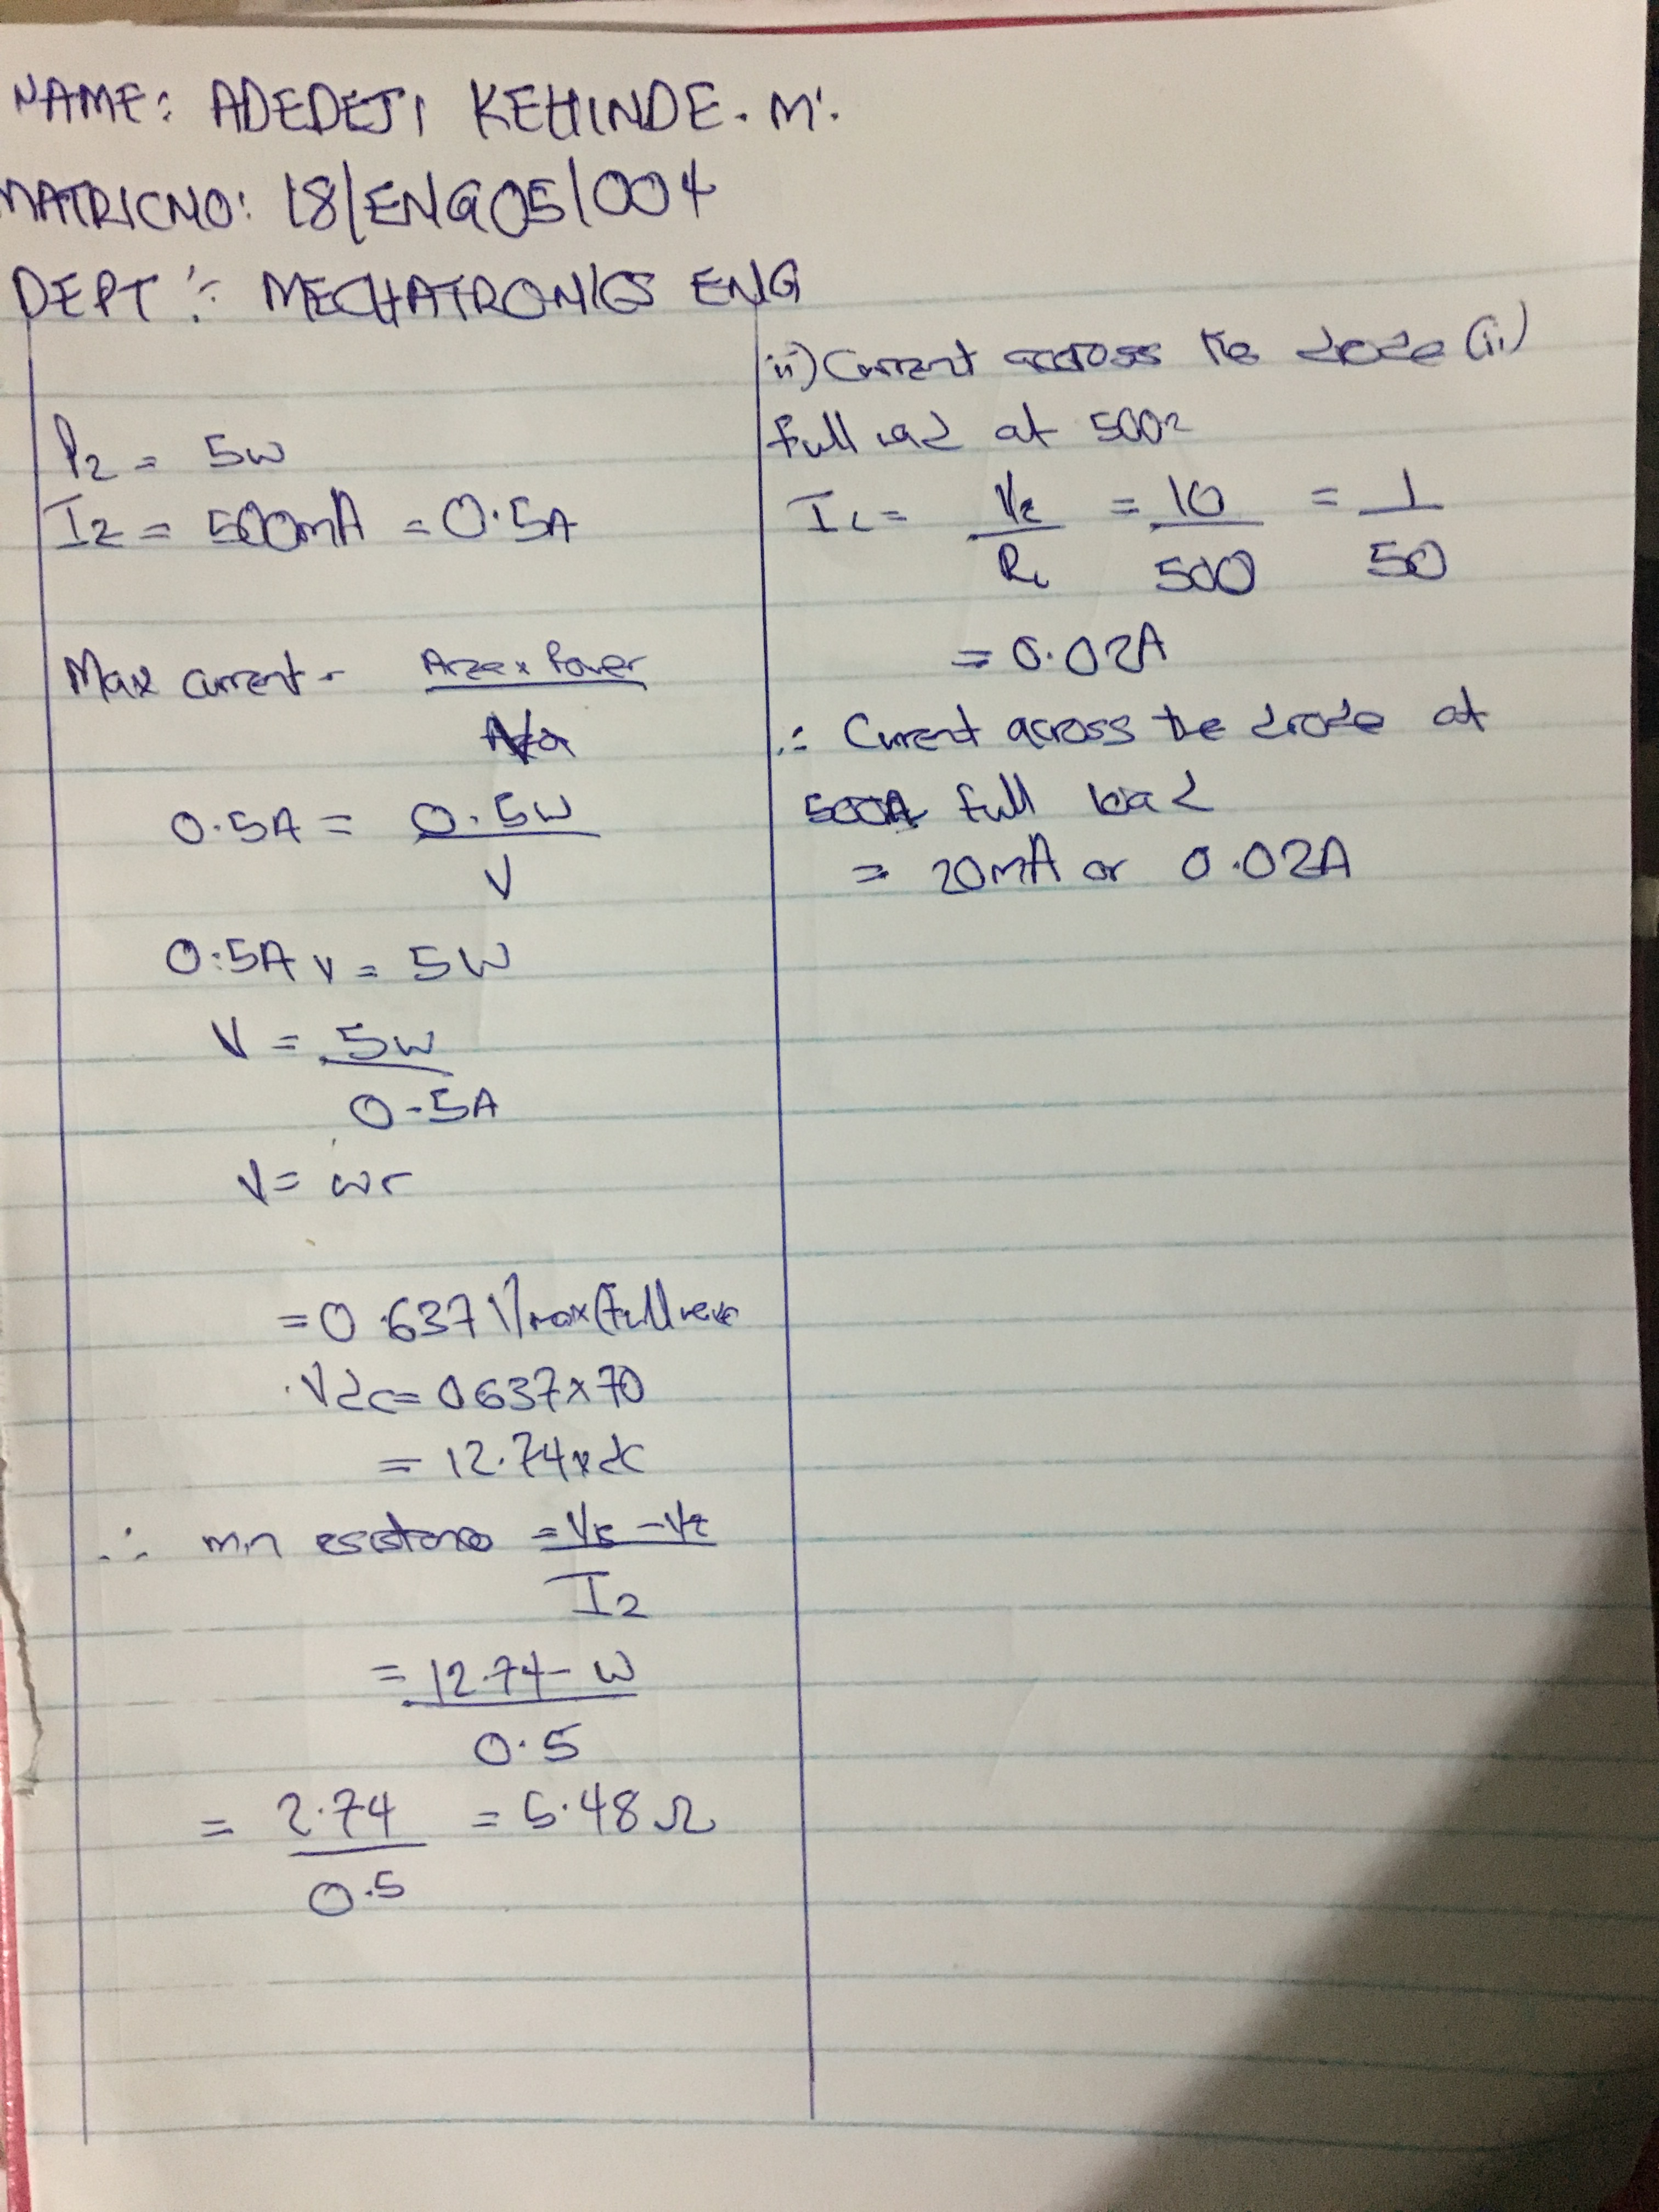 NAME: ADEDEJI KEHINDE. M.
MATRICNO: 18/ENG05/004
DEPT: MECHATRONICS ENG
Pz = 5w
Iz = 500mA = 0.5A
Max current = Power
0.5A = 0.5W
V
0.5A v = 5W
V = 5w
0.5A
V =
= 0.637 Vmax (full wave
Vdc = 0637 x 70
= 12.74 v dc
∴ min = Vs - Vz
Iz
= 12.74 -
0.5
= 2.74 = 5.48 Ω
0.5
ii) Current across the diode (ii)
full load at 500Ω
IL = Vz = 10 = 1
RL 500 50
= 0.02A
∴ Current across the diode at
full load
= 20mA or 0.02A